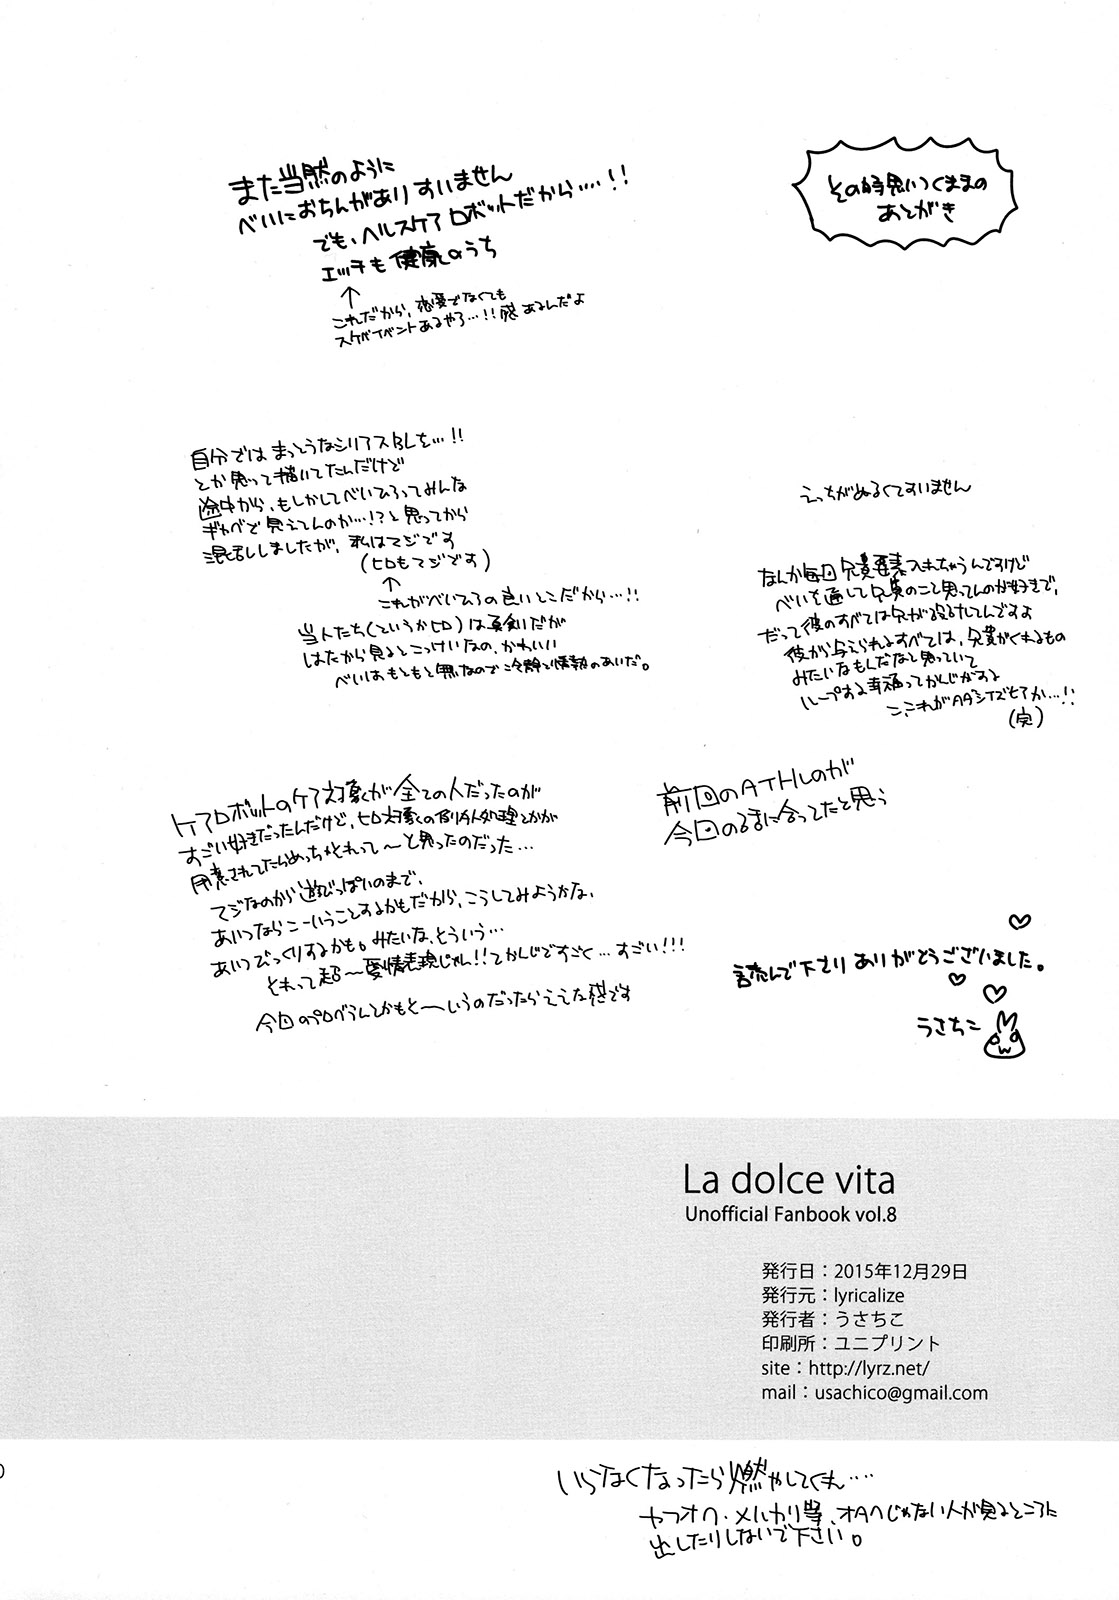 その時思いつくままの
あとがき
また当然のように
べいにおちんがありすいません
でも、ヘルスケアロボットだから‥‥!!
エッチも健康のうち
↑
これだから、恋愛でなくても
スケベイベントあるやろ…!!感あるんだよ
自分ではまっとうなシリアスBLを…!!
とか思って描いてたんだけど
途中から、もしかしてべいひろってみんな
ギャグで見えてんのか…!?と思ってから
混乱しましたが、私はマジです
(ヒロもマジです)
↑
これがべいひろの良いとこだから…!!
当人たち(というかヒロ)は真剣だが
はたから見るとこっけいなの、かわいい
べいはもともと無なので冷静と情熱のあいだ。
えっちがぬるくてすいません
なんか毎回兄貴要素入れちゃうんですけど
べいを通して兄貴のこと思ってんのが好きで、
だって彼のすべては兄が設計してんですよ
彼から与えられるすべては、兄貴がくれるもの
みたいなもんだなと思っていて
ループする幸福ってかんじがする
こ、これがAAシイズモアか…!!
(完)
ケアロボットのケア対象が全ての人だったのが
すごい好きだったんだけど、ヒロ対象くの例外処理とかが
用意されてたらめっちゃそれって〜と思ったのだった…
マジなのから遊びっぽいのまで、
あいつならこーいうことするかもだから、こうしてみようかな、
あいつびっくりするかも。みたいな、そういう…
それって超〜愛情表現じゃん!!てかんじですごく…すごい!!!
今回のプログラムとかもそーいうのだったらええな感です
前回のATHLのが
今回のるまに合ってたと思う
読んで下さりありがとうございました。
うさちこ
La dolce vita
Unofficial Fanbook vol.8
発行日：2015年12月29日
発行元：lyricalize
発行者：うさちこ
印刷所：ユニプリント
site：http://lyrz.net/
mail：usachico@gmail.com
いらなくなったら燃やしてくれ‥‥
ヤフオク・メルカリ等、オタクじゃない人が見るところに
出したりしないで下さい。